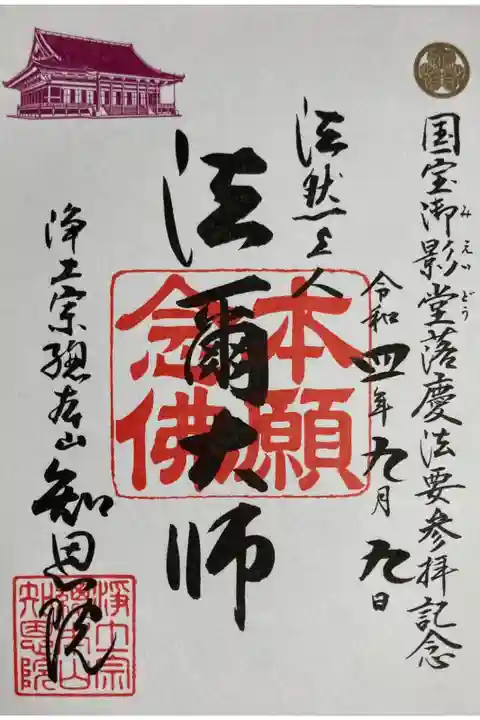 国宝御影堂落慶法要参拝記念
みえいどう
令和四年九月九日
法然上人
法爾大師
本願
念佛
浄土宗總本山知恩院
浄土宗
總本山
知恩院